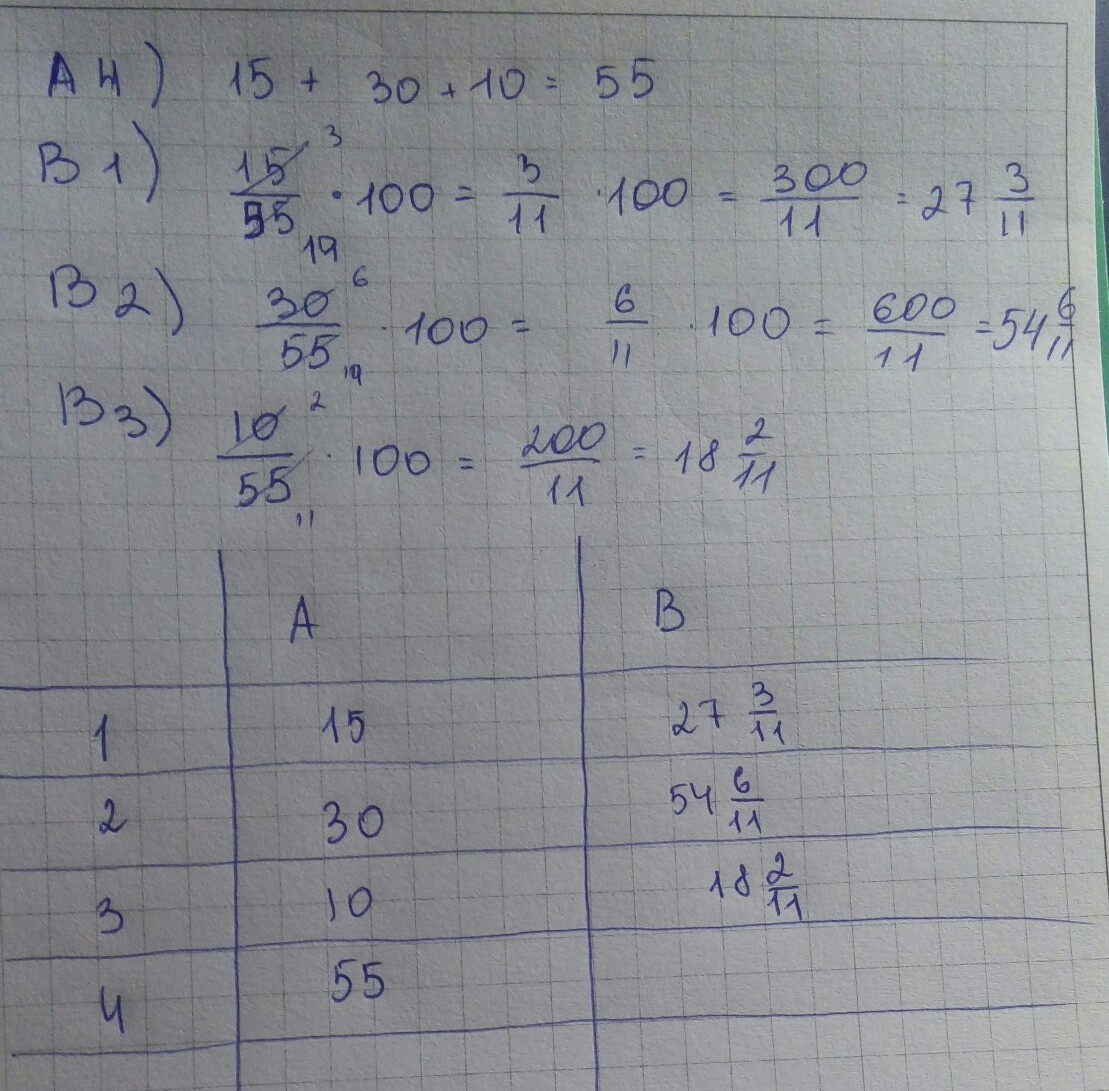 A4) 15 + 30 + 10 = 55
B1) 15/55 3 19 · 100 = 3/11 · 100 = 300/11 = 27 3/11
B2) 30/55 6 19 · 100 = 6/11 · 100 = 600/11 = 54 6/11
B3) 10/55 2 11 · 100 = 200/11 = 18 2/11
A B
1 15 27 3/11
2 30 54 6/11
3 10 18 2/11
4 55